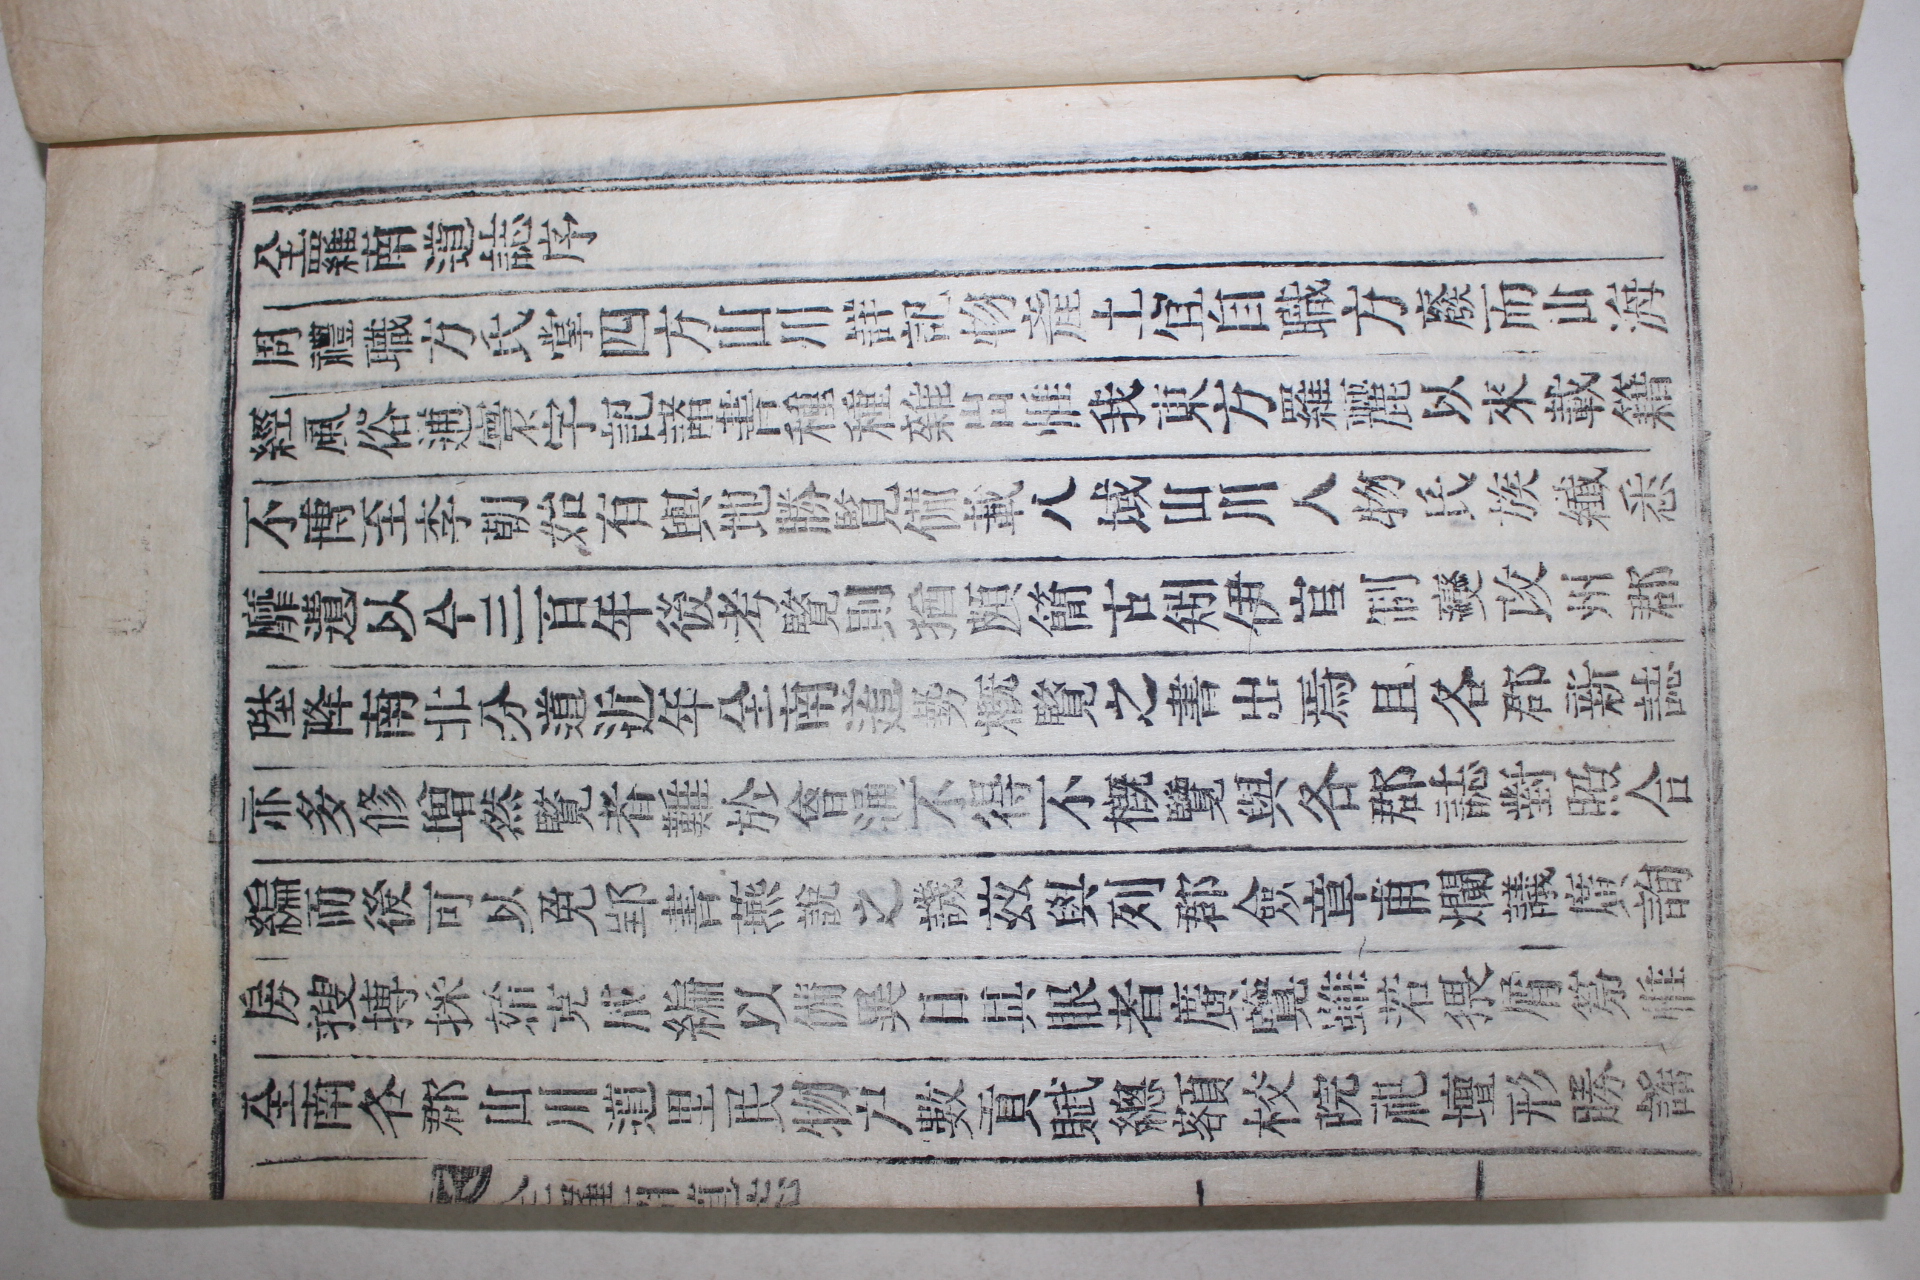 全羅南道誌序
周禮職方氏掌四方山川詳記物產土宜自職方廢而山海
經風俗通寰宇記諸書種種雜出惟我東方羅麗以來載籍
不博至李朝始有輿地勝覽備載八域山川人物氏族纖悉
靡遺以今三百年後考覽則猶頗簡古矧伊官制變改州郡
陞降南北分道近年全南道勢槪覽之書出焉且各郡新誌
亦多修增然覽者難於會通不得不槪覽與各郡誌對照合
編而後可以免郢書燕說之譏茲與列郡僉章甫爛議廣詢
房搜博採始克成編以備異日具眼者廣覽雖若猥屑等惟
全南各郡山川道里民物戶數貢賦總額校院祀壇形勝謠
全羅南道誌